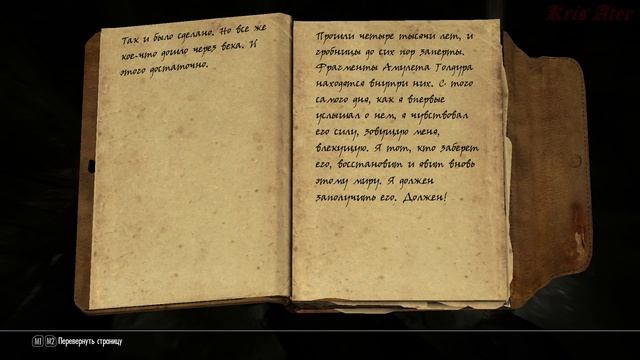 Kris Ater
Так и было сделано. Но все же
кое-что дошло через века. И
этого достаточно.
Прошли четыре тысячи лет, и
гробницы до сих пор заперты.
Фрагменты Амулета Голдура
находятся внутри них. С того
самого дня, как я впервые
услышал о нем, я чувствовал
его силу, зовущую меня,
влекущую. Я тот, кто заберет
его, восстановит и явит вновь
этому миру. Я должен
заполучить его. Должен!
M1 M2 Перевернуть страницу